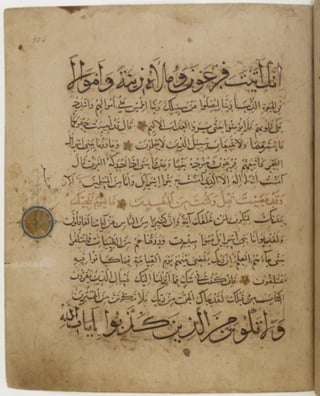 انك اتيت فرعون وملاه زينة واموالا
في الحيوة الدنيا ربنا ليضلوا عن سبيلك ربنا اطمس على اموالهم واشدد
على قلوبهم فلا يومنوا حتى يروا العذاب الاليم قال قد اجيبت دعوتكما
فاستقيما ولا تتبعان سبيل الذين لا يعلمون وجاوزنا ببني اسرائيل
البحر فاتبعهم فرعون وجنوده بغيا وعدوا حتى اذا ادركه الغرق قال
امنت انه لا اله الا الذي امنت به بنوا اسرائيل وانا من المسلمين الان
وقد عصيت قبل وكنت من المفسدين فاليوم ننجيك
ببدنك لتكون لمن خلفك اية وان كثيرا من الناس عن اياتنا لغافلون
ولقد بوانا بني اسرائيل مبوا صدق ورزقناهم من الطيبات فما اختلفوا
حتى جاءهم العلم ان ربك يقضي بينهم يوم القيامة فيما كانوا فيه
يختلفون فان كنت في شك مما انزلنا اليك فسال الذين يقرءون
الكتاب من قبلك لقد جاءك الحق من ربك فلا تكونن من الممترين
ولا تكونن من الذين كذبوا بايات الله